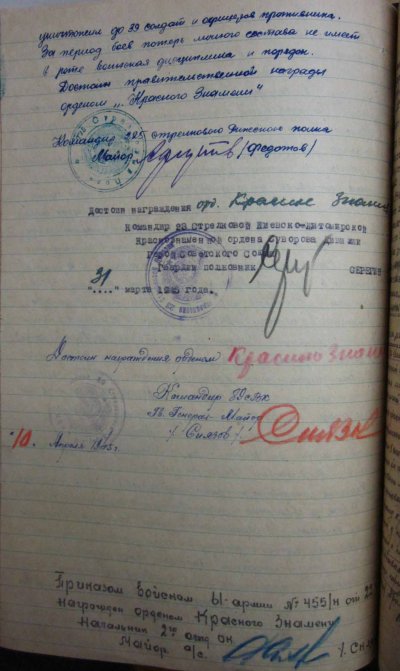 уничтожили до 39 солдат и офицеров противника.
За период боев потерь личного состава не имеет
в роте воинская дисциплина и порядок.
Достоин правительственной награды
орденом „Красного Знамени“
Командир 225 стрелкового полка
Майор /Федотов/
Достоин награждения орд. Красное Знамя
Командир Стрелковой Киевско-Житомирской
Краснознаменной ордена Суворова дивизии
Герой Советского Союза
Гвардии полковник СЕРЕГИН
"31" марта 1945 года.
Достоин награждения орденом Красного
Командир
Гв. Генерал Майор
/Сиязов/ Сиязов
"10" Апреля 1945 г.
Приказом войскам армии № 455/н от
награжден орденом Красного Знамени
Начальник 2го отд ОК
Майор а/с.